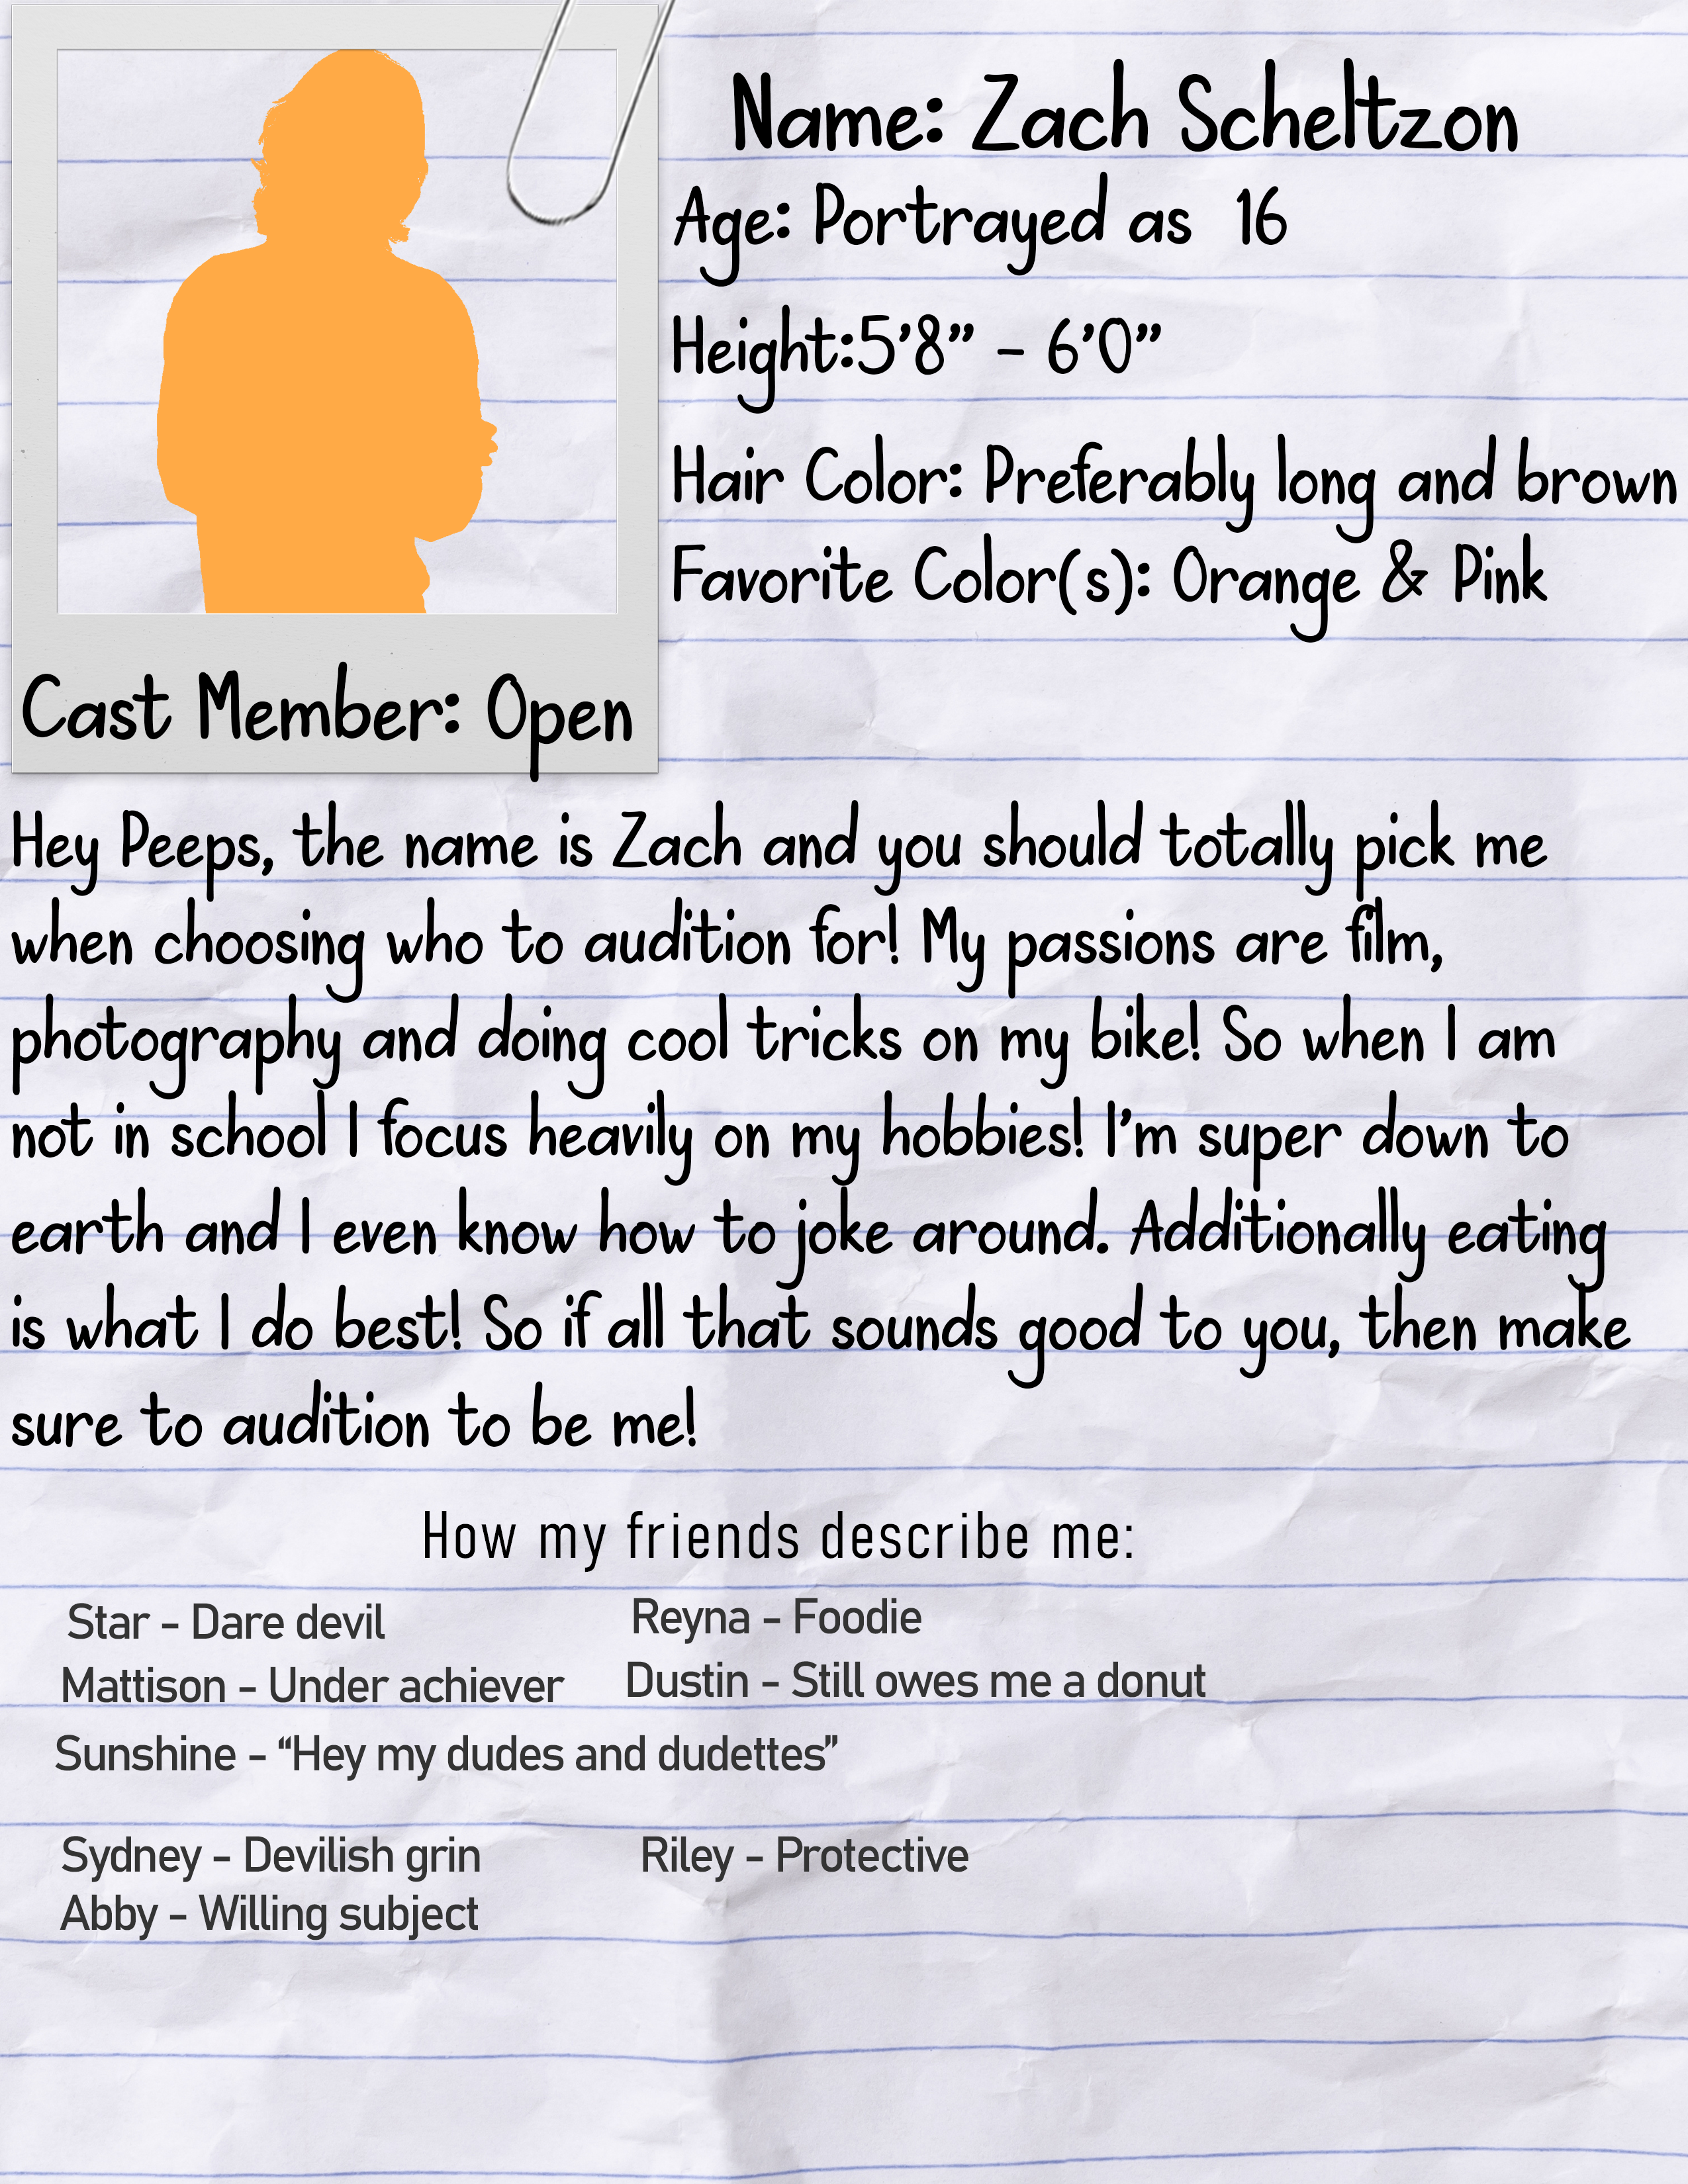 Name: Zach Scheltzon
Age: Portrayed as 16
Height:5’8” – 6’0”
Hair Color: Preferably long and brown
Favorite Color(s): Orange & Pink
Cast Member: Open
Hey Peeps, the name is Zach and you should totally pick me
when choosing who to audition for! My passions are film,
photography and doing cool tricks on my bike! So when I am
not in school I focus heavily on my hobbies! I’m super down to
earth and I even know how to joke around. Additionally eating
is what I do best! So if all that sounds good to you, then make
sure to audition to be me!
How my friends describe me:
Star - Dare devil
Reyna - Foodie
Mattison - Under achiever
Dustin - Still owes me a donut
Sunshine - “Hey my dudes and dudettes”
Sydney - Devilish grin
Riley - Protective
Abby - Willing subject